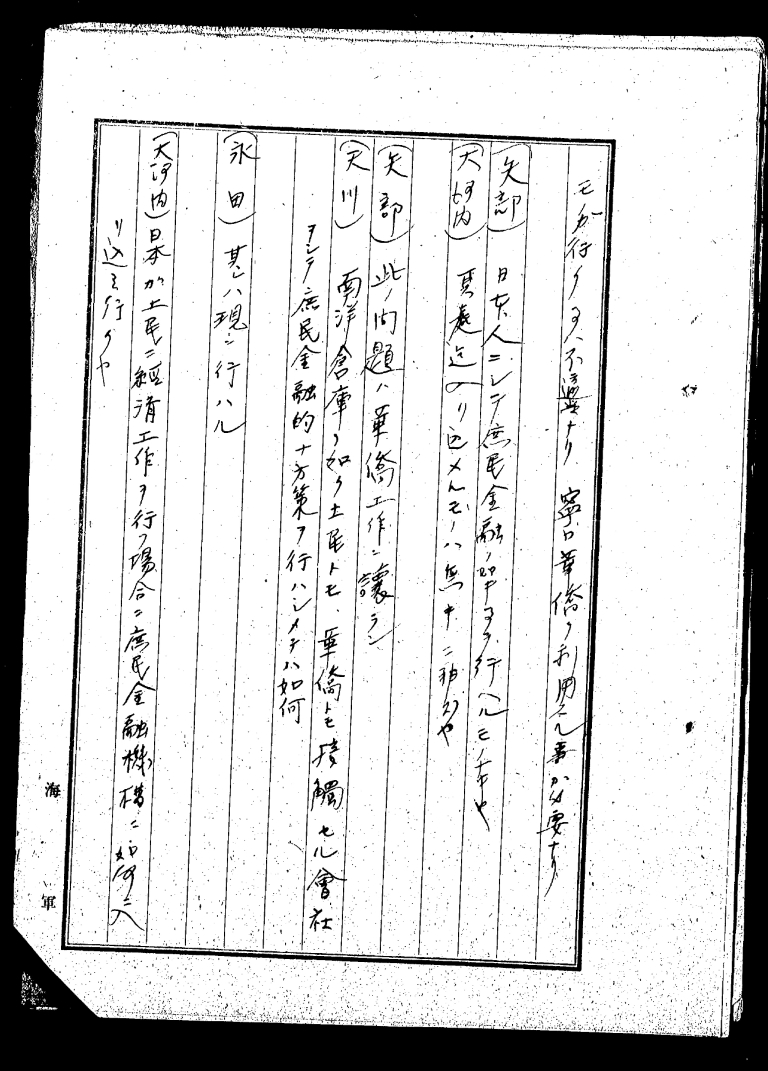 モノガ行クヿハ不適ナリ 寧ロ華僑ヲ利用スル事が必要ナリ
(矢部) 日本人ニシテ庶民金融ノ如キヿヲ行ヘルモノナキや
(大河内) 其處迄入リ込メルモノハ無キニ非ズや
(矢部) 此ノ問題ハ華僑工作ニ譲ラン
(天川) 南洋倉庫ノ如ク土民トモ、華僑トモ接觸セル會社
ヲシテ庶民金融的ナ方策ヲ行ハシメテハ如何
(永田) 其レハ現ニ行ハル
(大河内) 日本が土民ニ經済工作ヲ行フ場合ニ庶民金融機構ニ如何ニ入
リ込ミ行クや
海軍